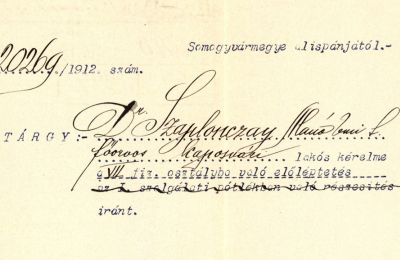 Somogyvármegye alispánjától.-
20269/1912. szám.
TÁRGY:- Dr Szaplonczay Manó
főorvos kaposvári lakós kérelme
a VII. fiz. osztályba való előléptetés
az I. szolgálati pótlékban való részesítés
iránt.